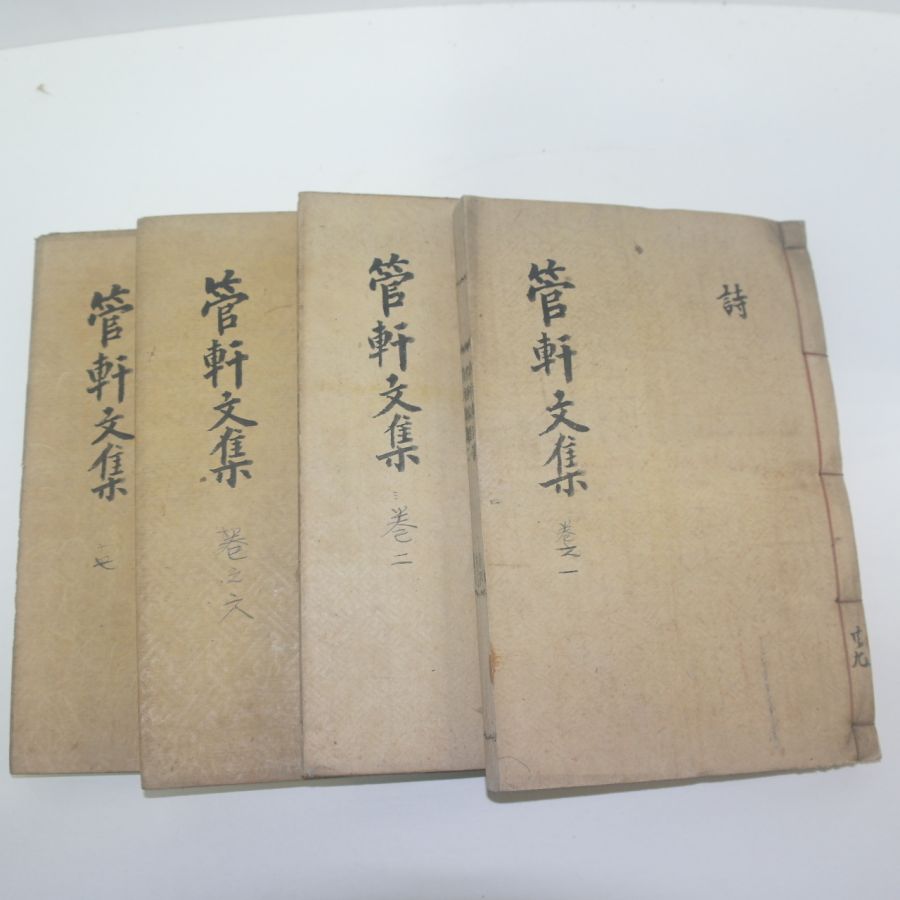 詩
管軒文集
卷之一
共九
管軒文集
卷二
管軒文集
卷之六
管軒文集